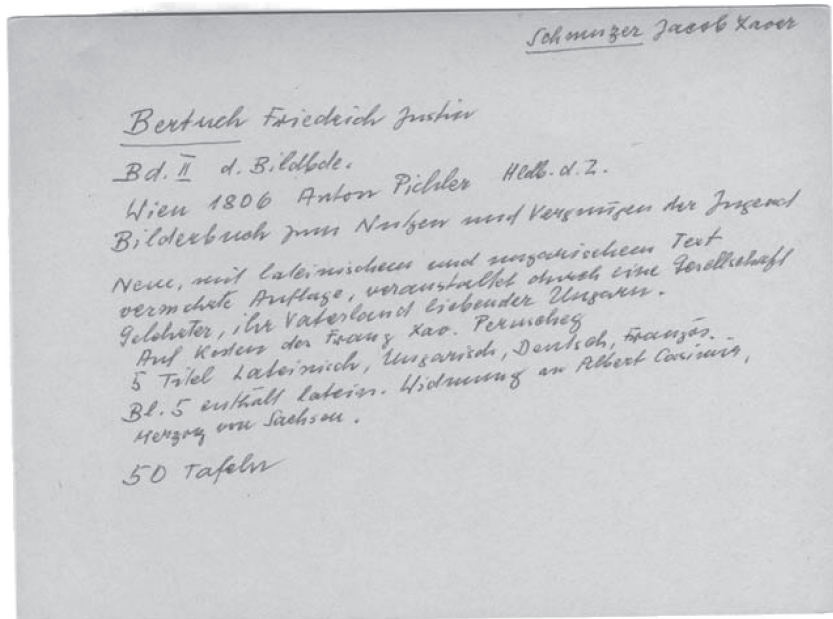 Schmuzer Jacob Xaver
Bertuch Friedrich Justin
Bd. II d. Bildbde.
Wien 1806 Anton Pichler Hldb. d. Z.
Bilderbuch zum Nutzen und Vergnügen der Jugend
Neue, mit lateinischem und ungarischem Text
vermehrte Auflage, veranstaltet durch eine Gesellschaft
Gelehrter, ihr Vaterland liebender Ungarn.
Auf Kosten des Franz Xav. Permscheg
5 Titel Lateinisch, Ungarisch, Deutsch, Französ.
Bl. 5 enthält latein. Widmung an Albert Casimir,
Herzog von Sachsen.
50 Tafeln